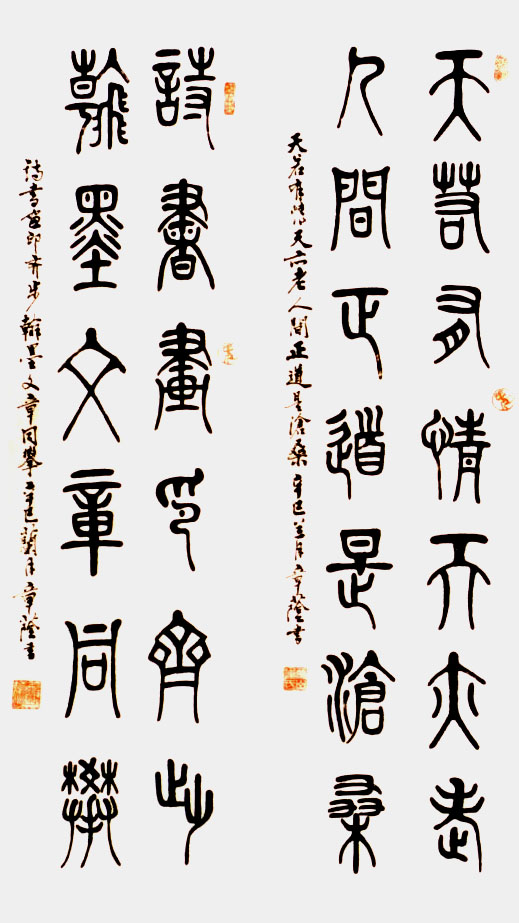 天若有情天亦老
人間正道是滄桑
天若有情天亦老人間正道是滄桑 辛巳 月章 書
詩書畫印齊步
翰墨文章同攀
詩書畫印齊步翰墨文章同攀 辛巳蘭月章 書